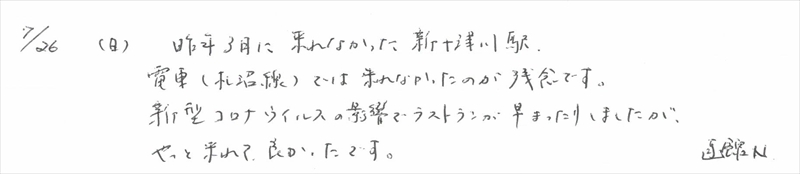 7/26 (日) 昨年3月に来れなかった新十津川駅、
電車(札沼線)では来れなかったのが残念です。
新型コロナウイルスの影響でラストランが早まったりしましたが、
やっと来れて良かったです。 N